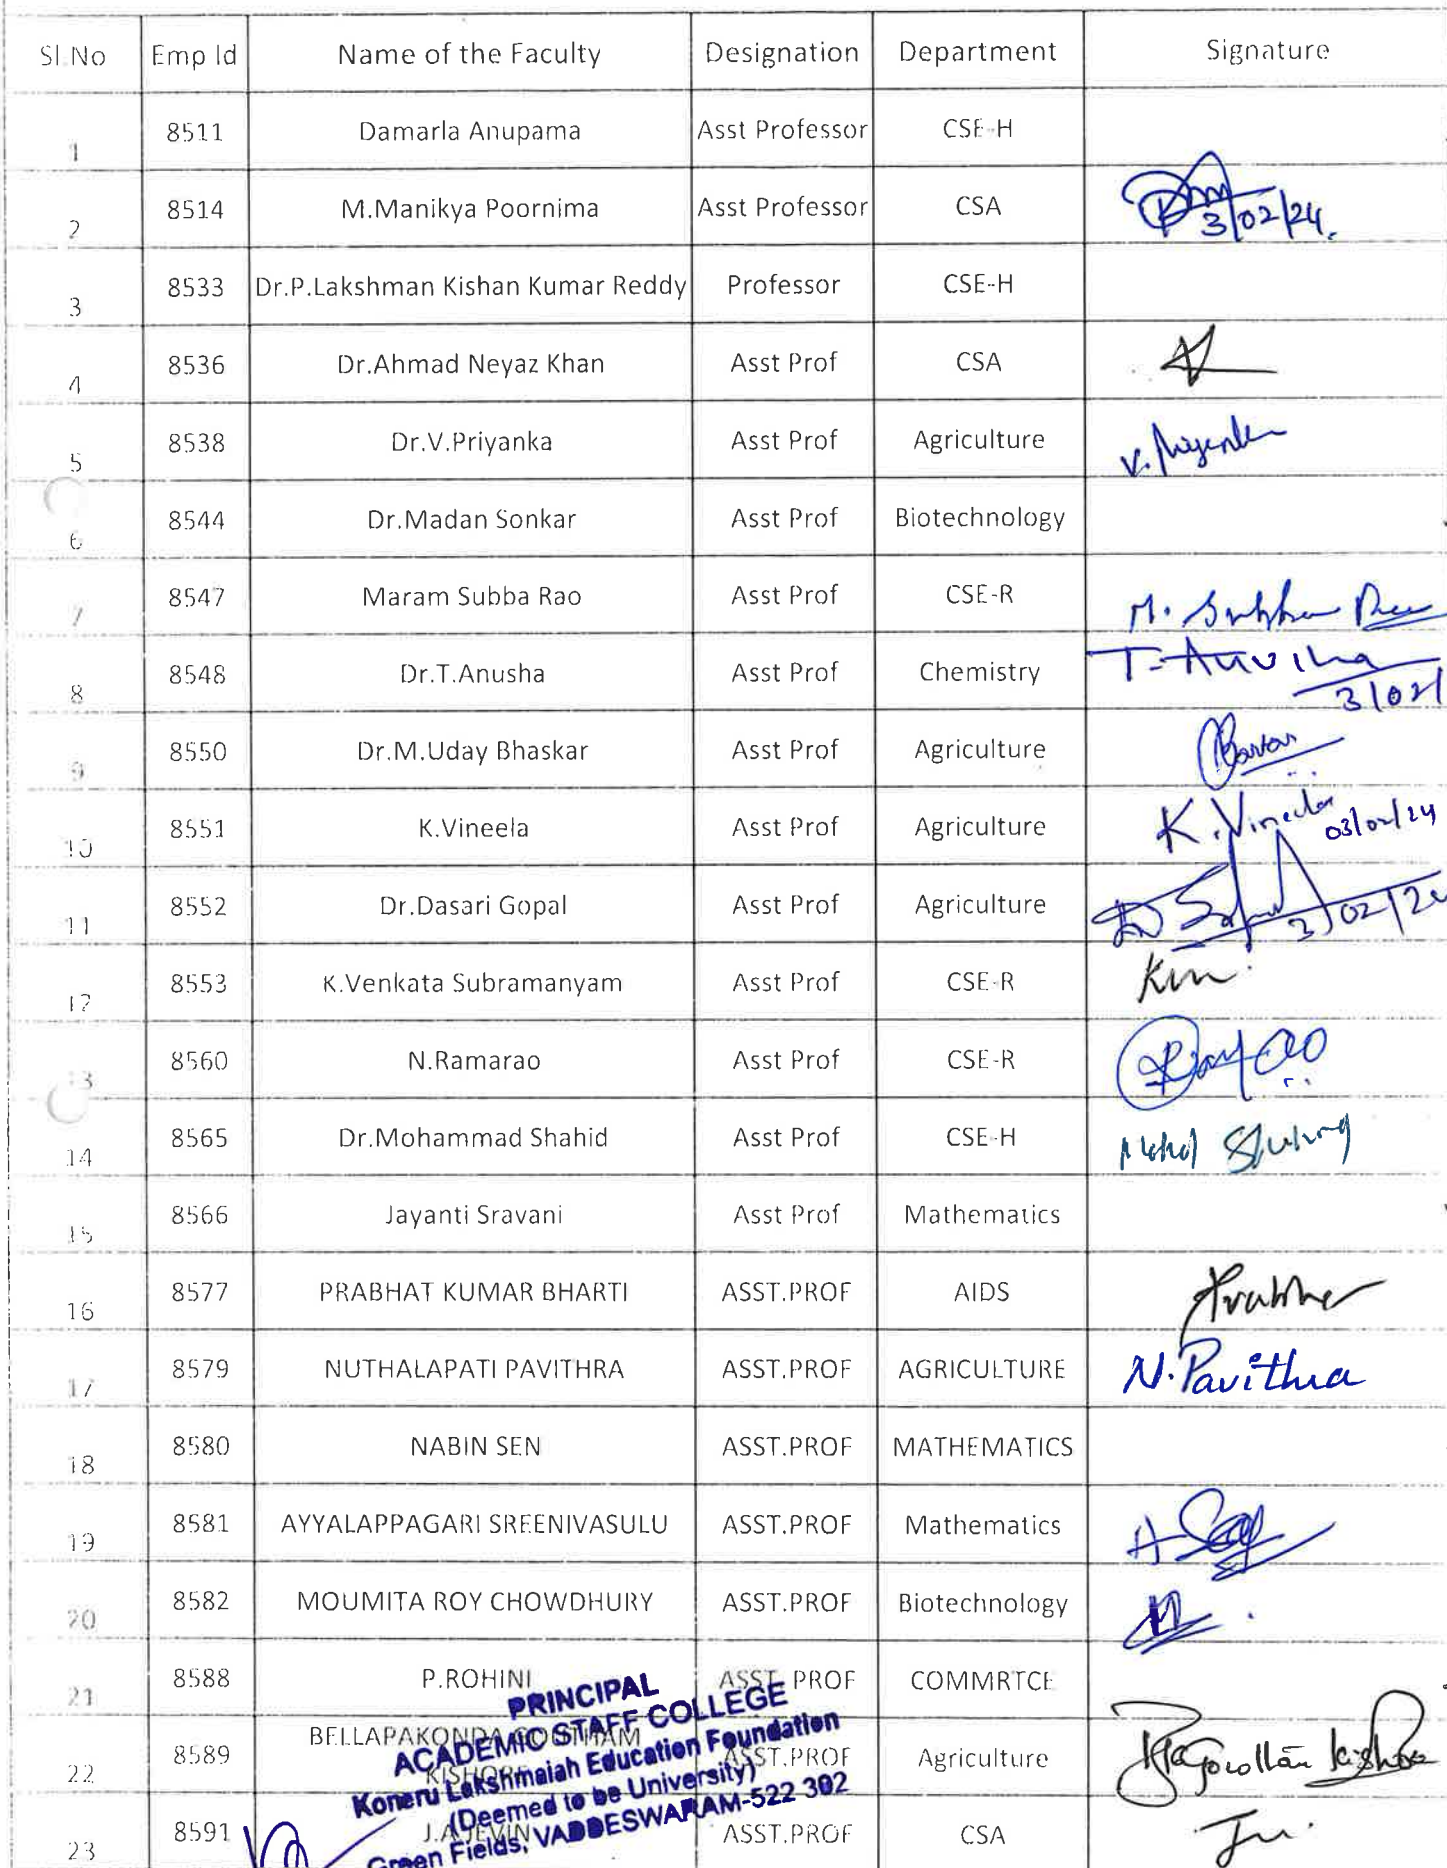 Sl.No Emp Id Name of the Faculty Designation Department Signature
1 8511 Damarla Anupama Asst Professor CSE-H
2 8514 M.Manikya Poornima Asst Professor CSA 3/02/24.
3 8533 Dr.P.Lakshman Kishan Kumar Reddy Professor CSE-H
4 8536 Dr.Ahmad Neyaz Khan Asst Prof CSA
5 8538 Dr.V.Priyanka Asst Prof Agriculture V.
6 8544 Dr.Madan Sonkar Asst Prof Biotechnology
7 8547 Maram Subba Rao Asst Prof CSE-R M. Subba Rao
8 8548 Dr.T.Anusha Asst Prof Chemistry T. Anusha
3/02/
9 8550 Dr.M.Uday Bhaskar Asst Prof Agriculture
10 8551 K.Vineela Asst Prof Agriculture K. Vineela 03/02/24
11 8552 Dr.Dasari Gopal Asst Prof Agriculture 3/02/2
12 8553 K.Venkata Subramanyam Asst Prof CSE-R
13 8560 N.Ramarao Asst Prof CSE-R
14 8565 Dr.Mohammad Shahid Asst Prof CSE-H
15 8566 Jayanti Sravani Asst Prof Mathematics
16 8577 PRABHAT KUMAR BHARTI ASST.PROF AIDS
17 8579 NUTHALAPATI PAVITHRA ASST.PROF AGRICULTURE N.Pavithra
18 8580 NABIN SEN ASST.PROF MATHEMATICS
19 8581 AYYALAPPAGARI SREENIVASULU ASST.PROF Mathematics
20 8582 MOUMITA ROY CHOWDHURY ASST.PROF Biotechnology
21 8588 P.ROHINI ASST. PROF COMMRTCE
22 8589 BELLAPAKONDA GOUTHAM
KISHORE ASST.PROF Agriculture
23 8591 J.AJEVIN ASST.PROF CSA
PRINCIPAL
ACADEMIC STAFF COLLEGE
Koneru Lakshmaiah Education Foundation
(Deemed to be University)
Green Fields, VADDESWARAM-522 302